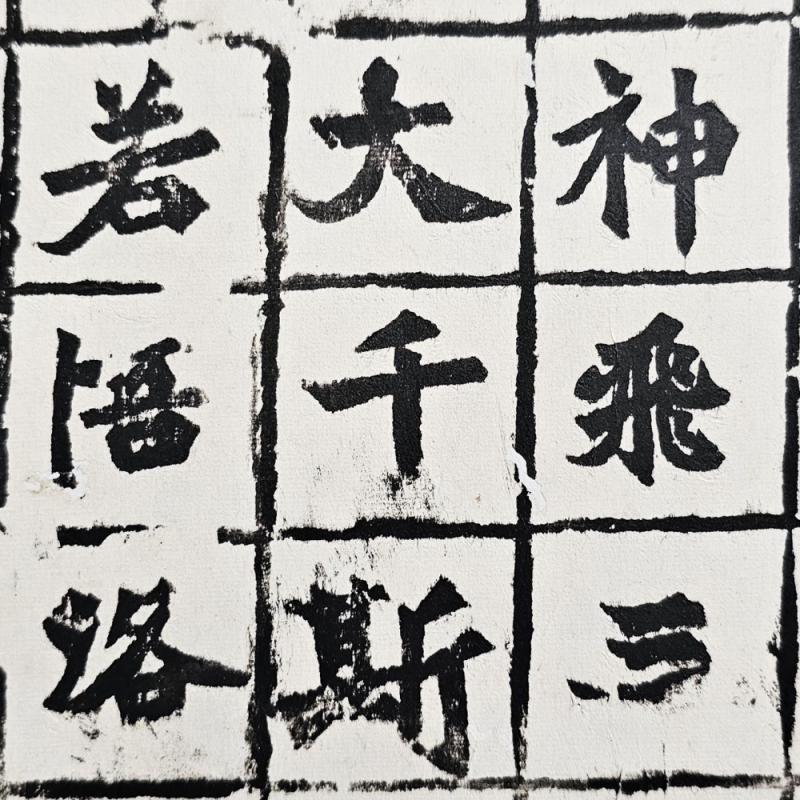 神飛三
大千斯
若悟洛